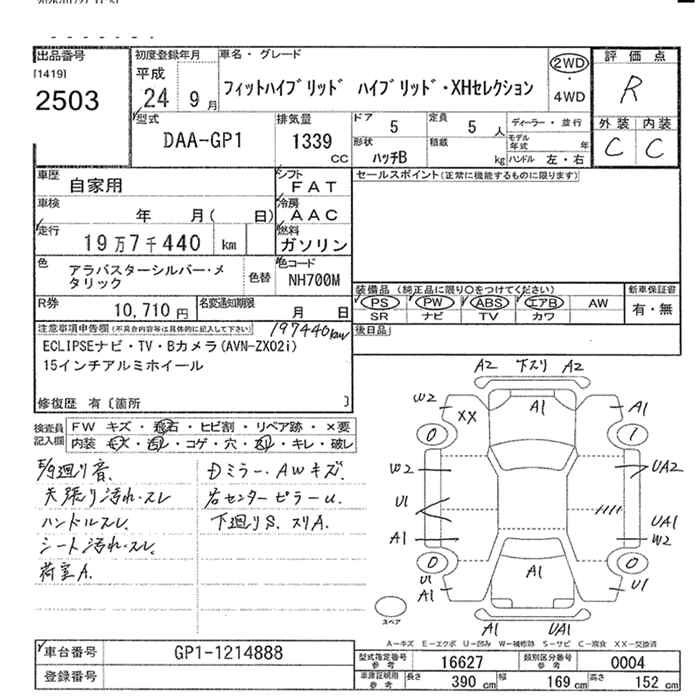 出品番号
[1419]
2503
初度登録年月
平成
24 9月
車名・グレード
フィットハイブリッド ハイブリッド・XHセレクション
2WD
・
4WD
評価点
R
外装 内装
C C
型式
DAA-GP1
排気量
1339
CC
ドア 5
定員 5 人
ディーラー・並行
形状 ハッチB
積載 kg
モデル年式 年
ハンドル 左・右
車歴 自家用
シフト FAT
セールスポイント(正常に機能するものに限ります)
車検 年 月( 日)
冷房 AAC
走行 19万7千440 km
燃料 ガソリン
色 アラバスターシルバー・メタリック
色替
色コード NH700M
装備品 (純正品に限り○をつけてください)
新車保証書
PS PW ABS エアB AW
有・無
SR ナビ TV カワ
R券 10,710円
名変通知期限 月 日
後日品
注意事項申告欄(不具合内容等は具体的に記入して下さい)
197440km
ECLIPSEナビ・TV・Bカメラ(AVN-ZX02i)
15インチアルミホイール
修復歴 有〔箇所 〕
検査員記入欄
FW キズ・飛石・ヒビ割・リペア跡・×要
内装 キズ・汚レ・コゲ・穴・スレ・キレ・破レ
天張り汚れ・スレ
ハンドルスレ
シート汚れ・スレ
荷室A.
Dミラー・AWキズ.
右センターピラーU.
下廻りS.スリA.
A2 下スリ A2
W2 XX A1 A1
0 1
W2 UA2
U1
UA1
A1 W2
0 0
U1 A1 A1 U1
A1 UA1
スペア
A-キズ E-エクボ U-凹み W-補修跡 S-サビ C-腐食 XX-交換済
車台番号 GP1-1214888
登録番号
型式指定番号 参考 16627
類別区分番号 参考 0004
車庫証明用 参考
長さ 390cm 幅 169cm 高さ 152cm